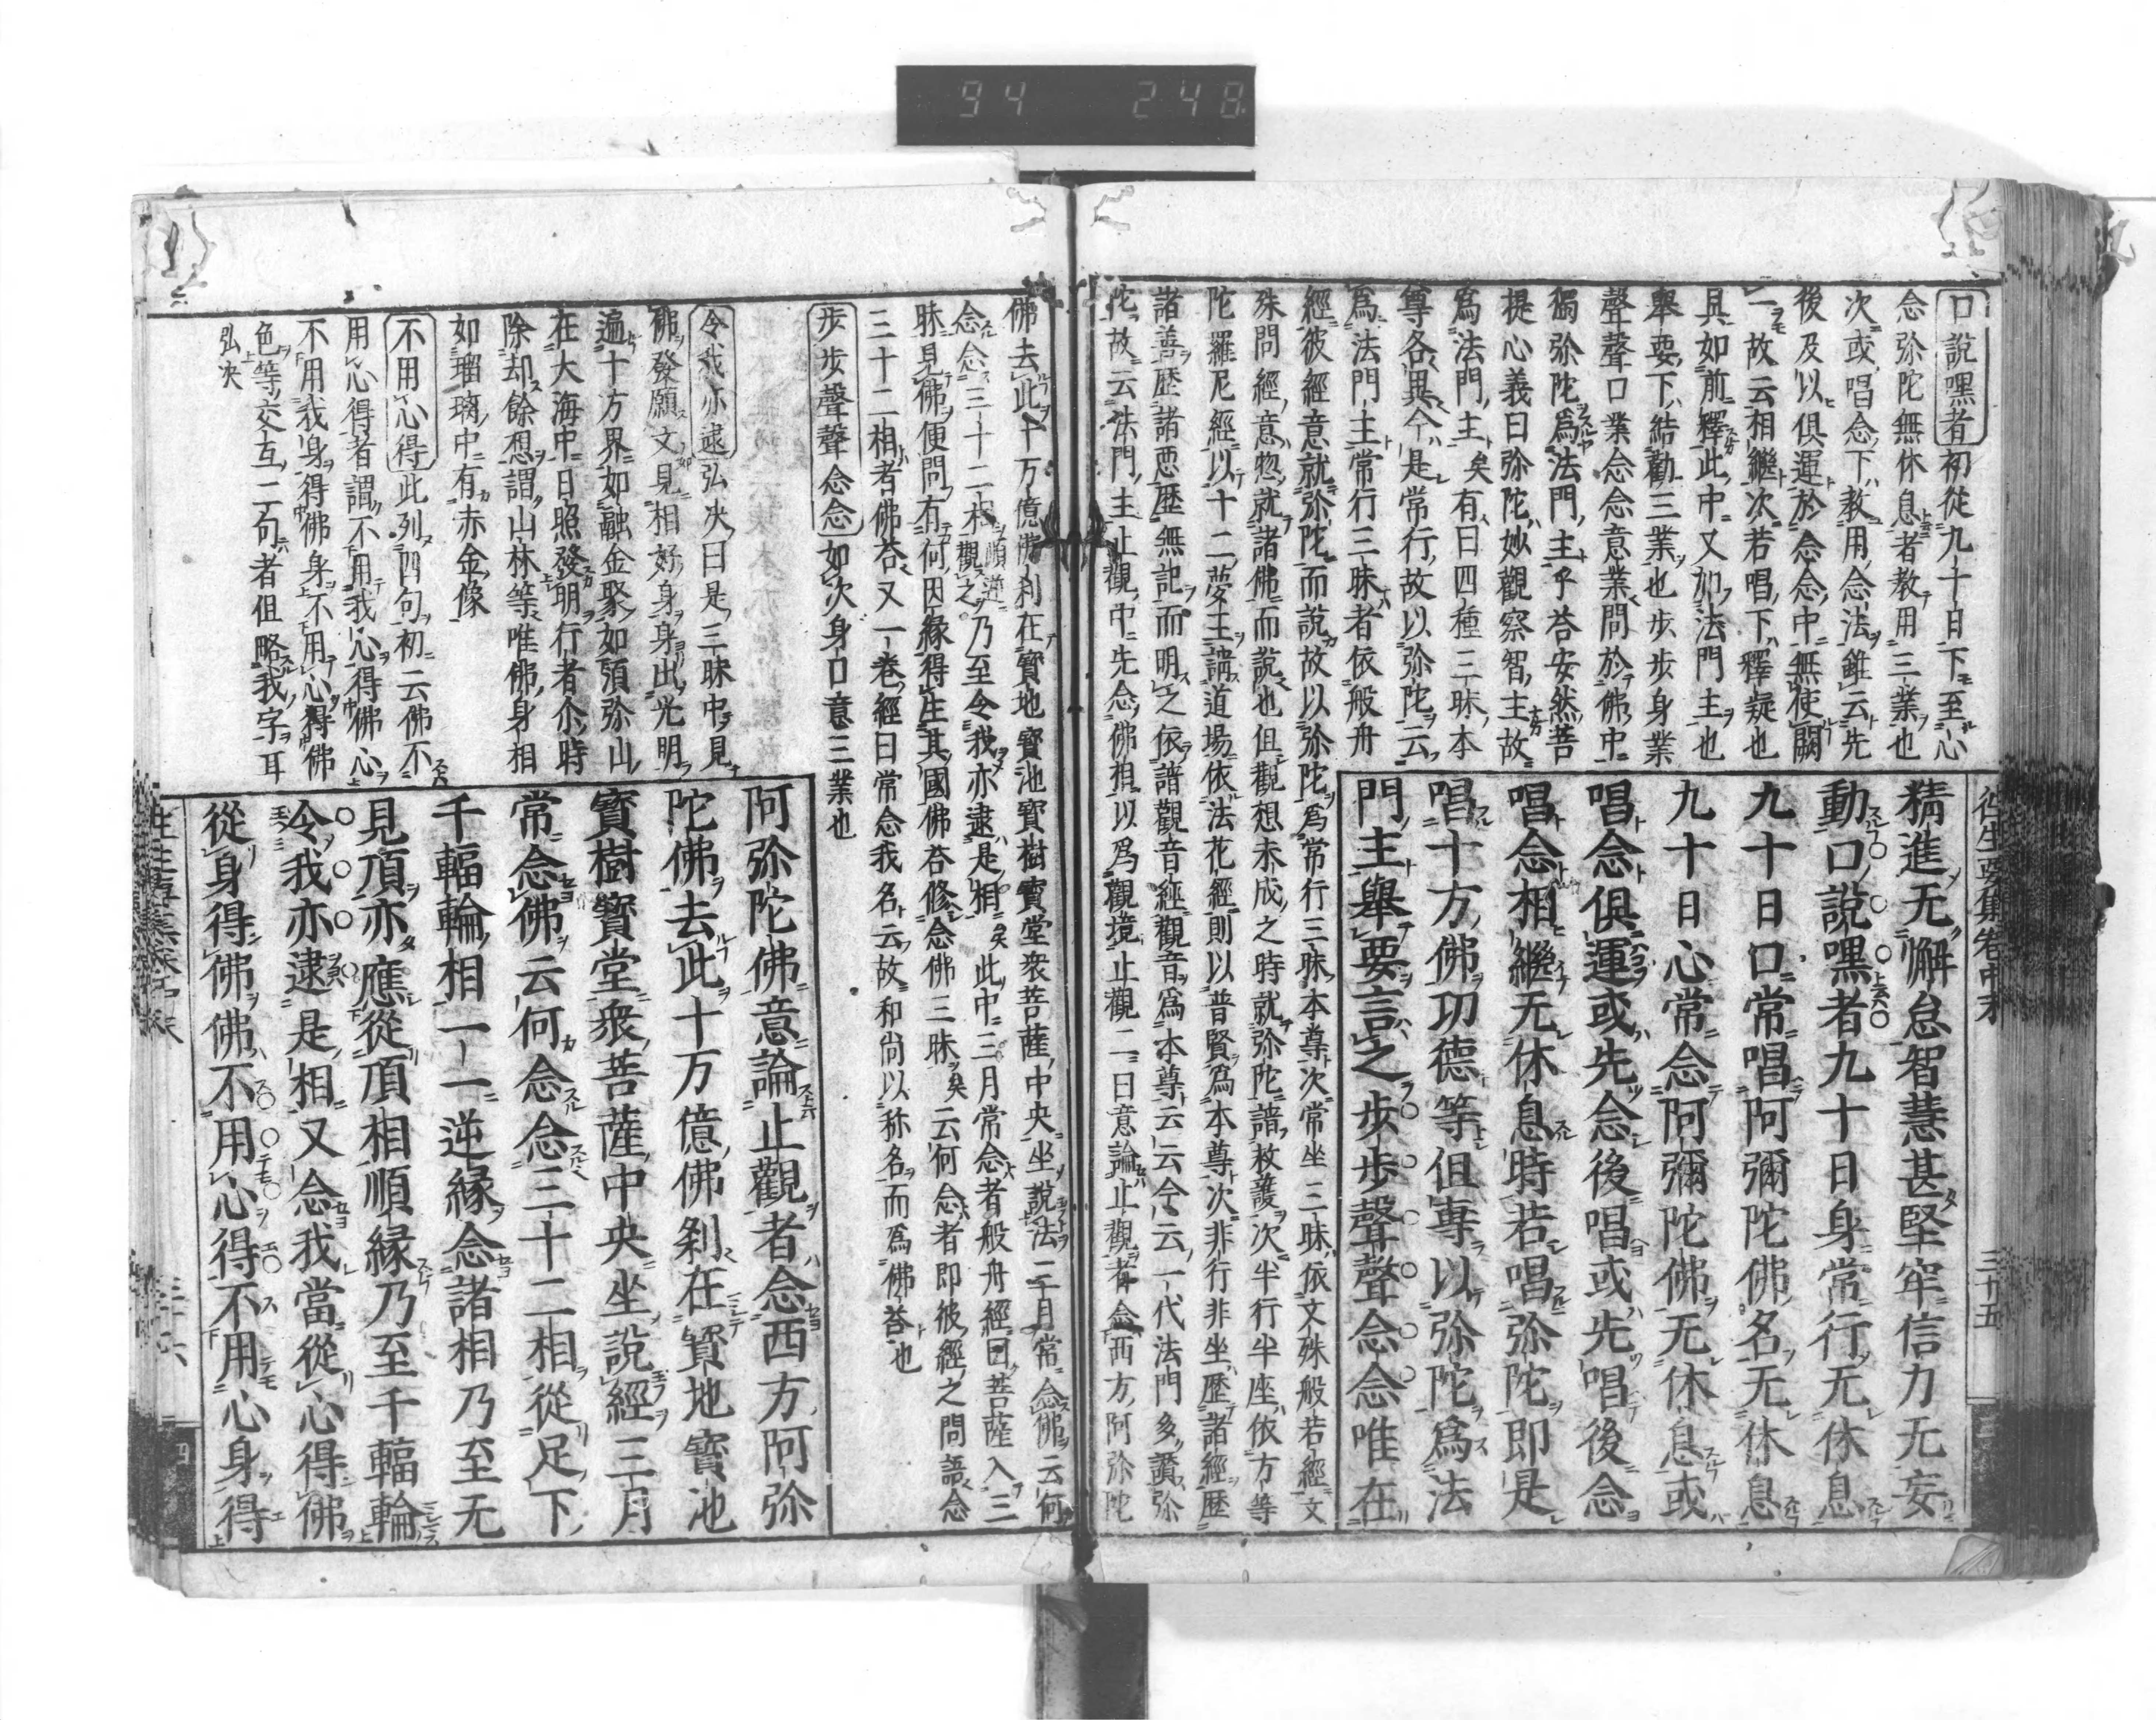 94 248
往生要集卷中末
三十五
口說嘿者初從九十日下至心
念弥陀無休息者教用三業也
次或唱念下教用念法雖云先
後及以俱運於念念中無使闕
一故云相繼次若唱下釋疑也
具如前釋此中又如法門主也
舉要下結勸三業也步步身業
聲聲口業念念意業問於佛中
獨弥陀為法門主乎荅安然菩
提心義曰弥陀妙觀察智主故
為法門主矣有曰四種三昧本
尊各異今是常行故以弥陀云
為法門主常行三昧者依般舟
經彼經意就弥陀而說故以弥陀為常行三昧本尊次常坐三昧依文殊般若經文
殊問經意惣就諸佛而說也但觀想未成之時就弥陀請救護次半行半座依方等
陀羅尼經以十二夢王講道場依法花經則以普賢為本尊次非行非坐歷諸經歷
諸善歷諸惡歷無記而明之依請觀音經觀音為本尊云云今云一代法門多讚弥
陀故云法門主止觀中先念佛相以為觀境止觀二曰意論止觀者念西方阿弥陀
精進无懈怠智慧甚堅牢信力无妄
動口說嘿者九十日身常行无休息
九十日口常唱阿彌陀佛名无休息
九十日心常念阿彌陀佛无休息或
唱念俱運或先念後唱或先唱後念
唱念相繼无休息時若唱弥陀即是
唱十方佛功德等但專以弥陀為法
門主舉要言之步步聲聲念念唯在
佛去此十万億佛刹在寶地寶池寶樹寶堂衆菩薩中央坐說法三月常念佛云何
念念三十二相觀之乃至令我亦逮是相矣此中三月常念者般舟經曰菩薩入三
昧見佛便問有何因緣得生其國佛荅修念佛三昧矣云何念者即彼經之問語念
三十二相者佛荅又一卷經曰常念我名云故和尚以称名而為佛荅也
步步聲聲念念如次身口意三業也
令我亦逮弘决曰是三昧中見
佛發願文見相好身身出光明
遍十方界如融金聚如須弥山
在大海中日照發明行者尒時
除却餘想謂山林等唯佛身相
如瑠璃中有赤金像
不用心得此列四句初云佛不
用心得者謂不用我心得佛心
不用我身得佛身不用心得佛
色等交互二句者但略我字耳
弘决
阿弥陀佛意論止觀者念西方阿弥
陀佛去此十万億佛刹在寶地寶池
寶樹寶堂衆菩薩中央坐說經三月
常念佛云何念念三十二相從足下
千輻輪相一一逆緣念諸相乃至无
見頂亦應從頂相順緣乃至千輻輪
令我亦逮是相又念我當從心得佛
從身得佛佛不用心得不用心身得